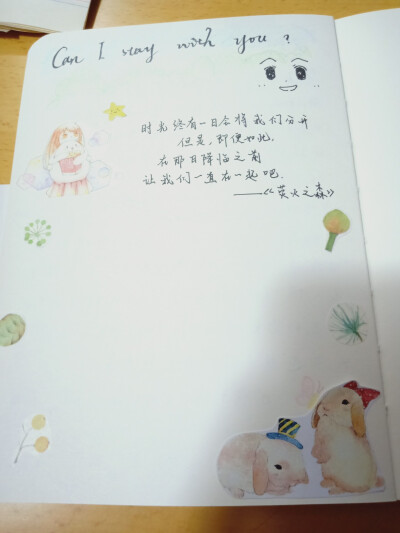 Can I stay with you?
时光终有一日会将我们分开
但是，即便如此，
在那日降临之前
让我们一直在一起吧.
——《萤火之森》